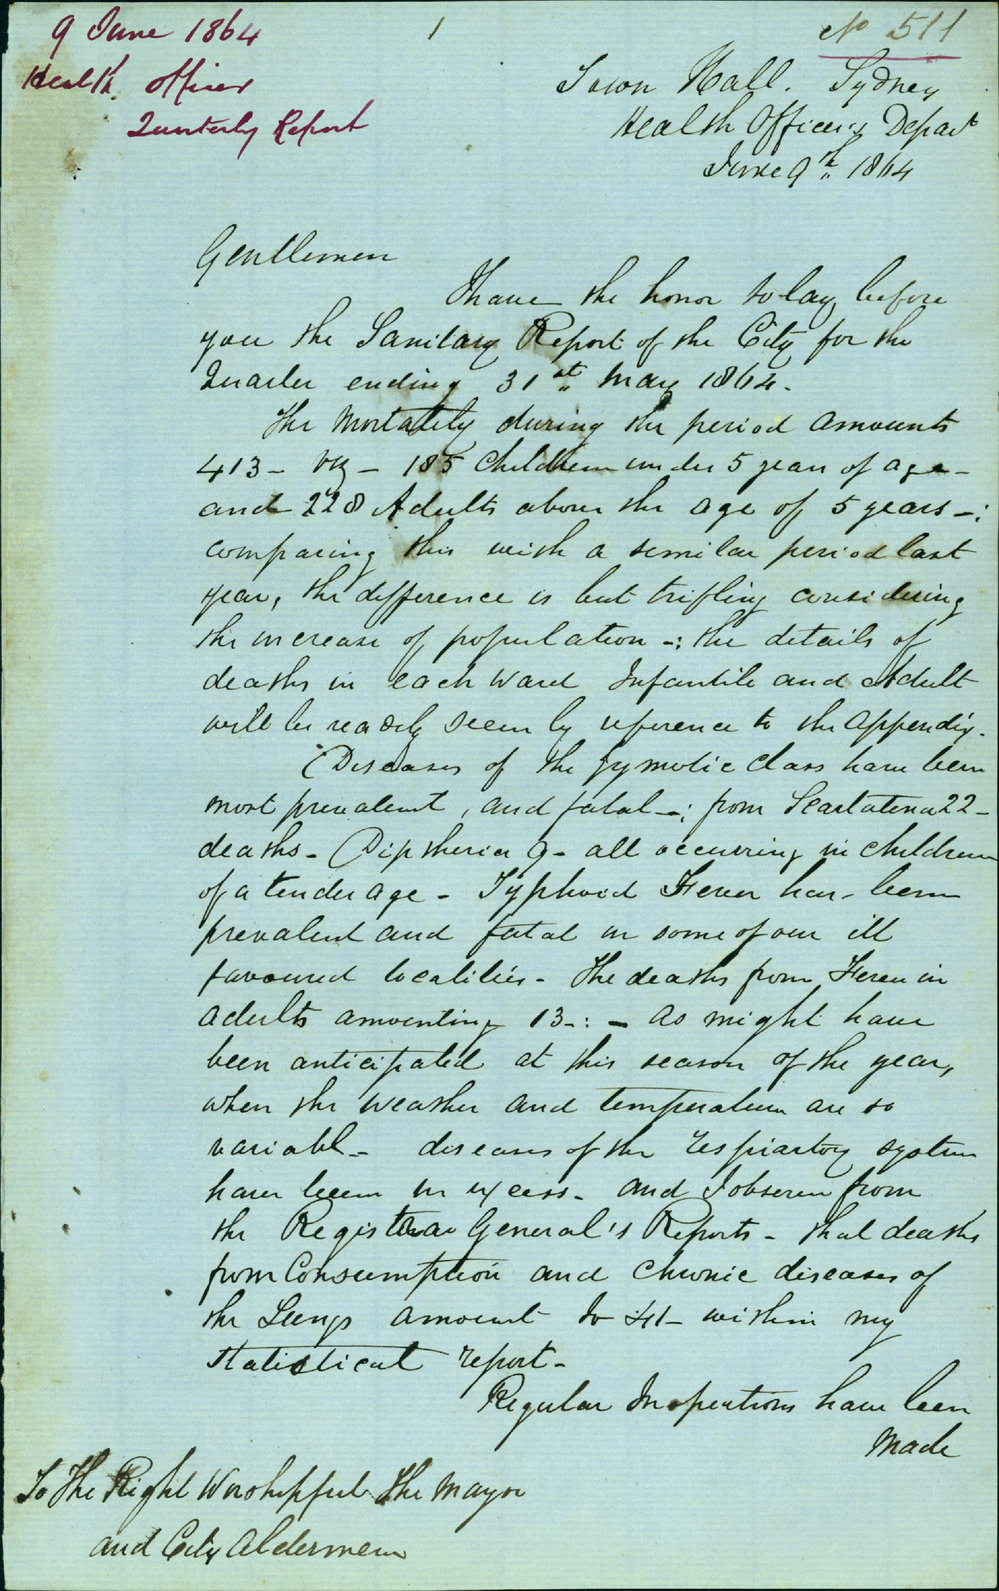 9 June 1864
Health Officer
Quarterly Report
1
No 511
Town Hall. Sydney
Health Officer's Depart
June 9th 1864
Gentlemen
I have the honor to lay before
you the Sanitary Report of the City for the
Quarter ending 31st May 1864.
The Mortality during the period amounts
413 - viz - 185 Children under 5 years of age -
and 228 Adults above the age of 5 years -:
comparing this with a similar period last
year, the difference is but trifling considering
the increase of population -: the details of
deaths in each Ward Infantile and Adult
will be readily seen by reference to the Appendix.
Diseases of the Zymotic Class have been
most prevalent, and fatal -: from Scarlatena 22 -
deaths - Diptheria 9 - all occurring in children
of a tender age - Typhoid Fever has been
prevalent and fatal in some of our ill
favoured localities - The deaths from Fever in
adults amounting 13 -: - As might have
been anticipated at this season of the year,
when the weather and temperature are so
variable - diseases of the respiartory system
have been in excess - and I observe from
the Registrar General's Reports - that deaths
from Consumption and Chronic diseases of
the Lungs amount to 41 - within my
statistical report -
Regular Inspections have been
made
To The Right Worshipful The Mayor
and City Aldermen